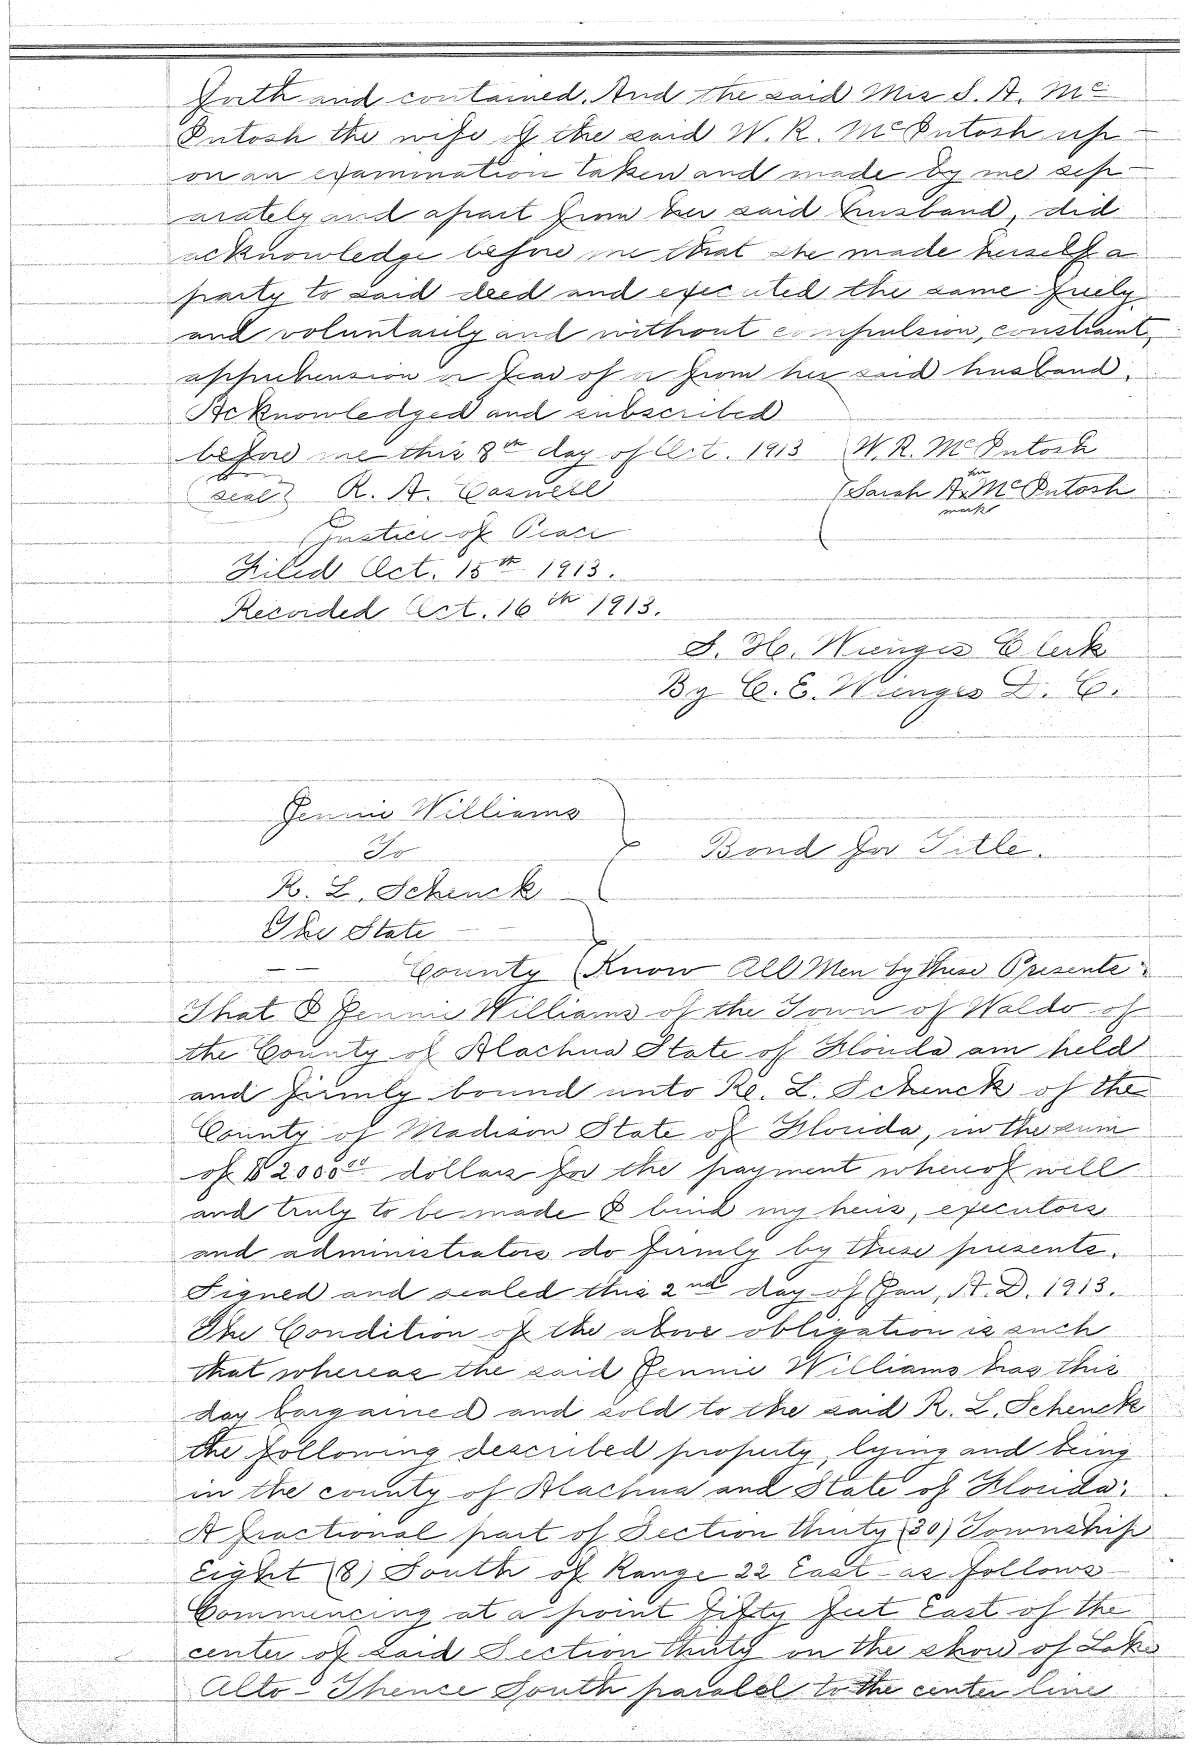 forth and contained. And the said Mrs S. A. Mc
Intosh the wife of the said W. R. McIntosh up-
on an examination taken and made by me sep-
arately and apart from her said husband, did
acknowledge before me that she made herself a
party to said deed and executed the same freely
and voluntarily and without compulsion, constraint,
apprehension or fear of or from her said husband.
Acknowledged and subscribed
before me this 8th day of Oct. 1913 W. R. McIntosh
(seal) R. A. Caswell Sarah A. her x mark McIntosh
Justice of Peace
Filed Oct. 15th 1913.
Recorded Oct. 16th 1913.
S. H. Wienges Clerk
By C. E. Wienges D. C.
Jennie Williams
To
Bond for Title.
R. L. Schenck
The State — —
— — County (Know All Men by these Presents:
That I Jennie Williams of the Town of Waldo of
the County of Alachua State of Florida am held
and firmly bound unto R. L. Schenck of the
County of Madison State of Florida, in the sum
of $2000.00 dollars for the payment whereof well
and truly to be made I bind my heirs, executors
and administrators do firmly by these presents.
Signed and sealed this 2nd day of Jan, A. D. 1913.
The Condition of the above obligation is such
that whereas the said Jennie Williams has this
day bargained and sold to the said R. L. Schenck
the following described property, lying and being
in the county of Alachua and State of Florida:
A fractional part of Section thirty (30) Township
Eight (8) South of Range 22 East - as follows
Commencing at a point fifty feet East of the
center of said Section thirty on the shore of Lake
Alto - Thence South paralel to the center line